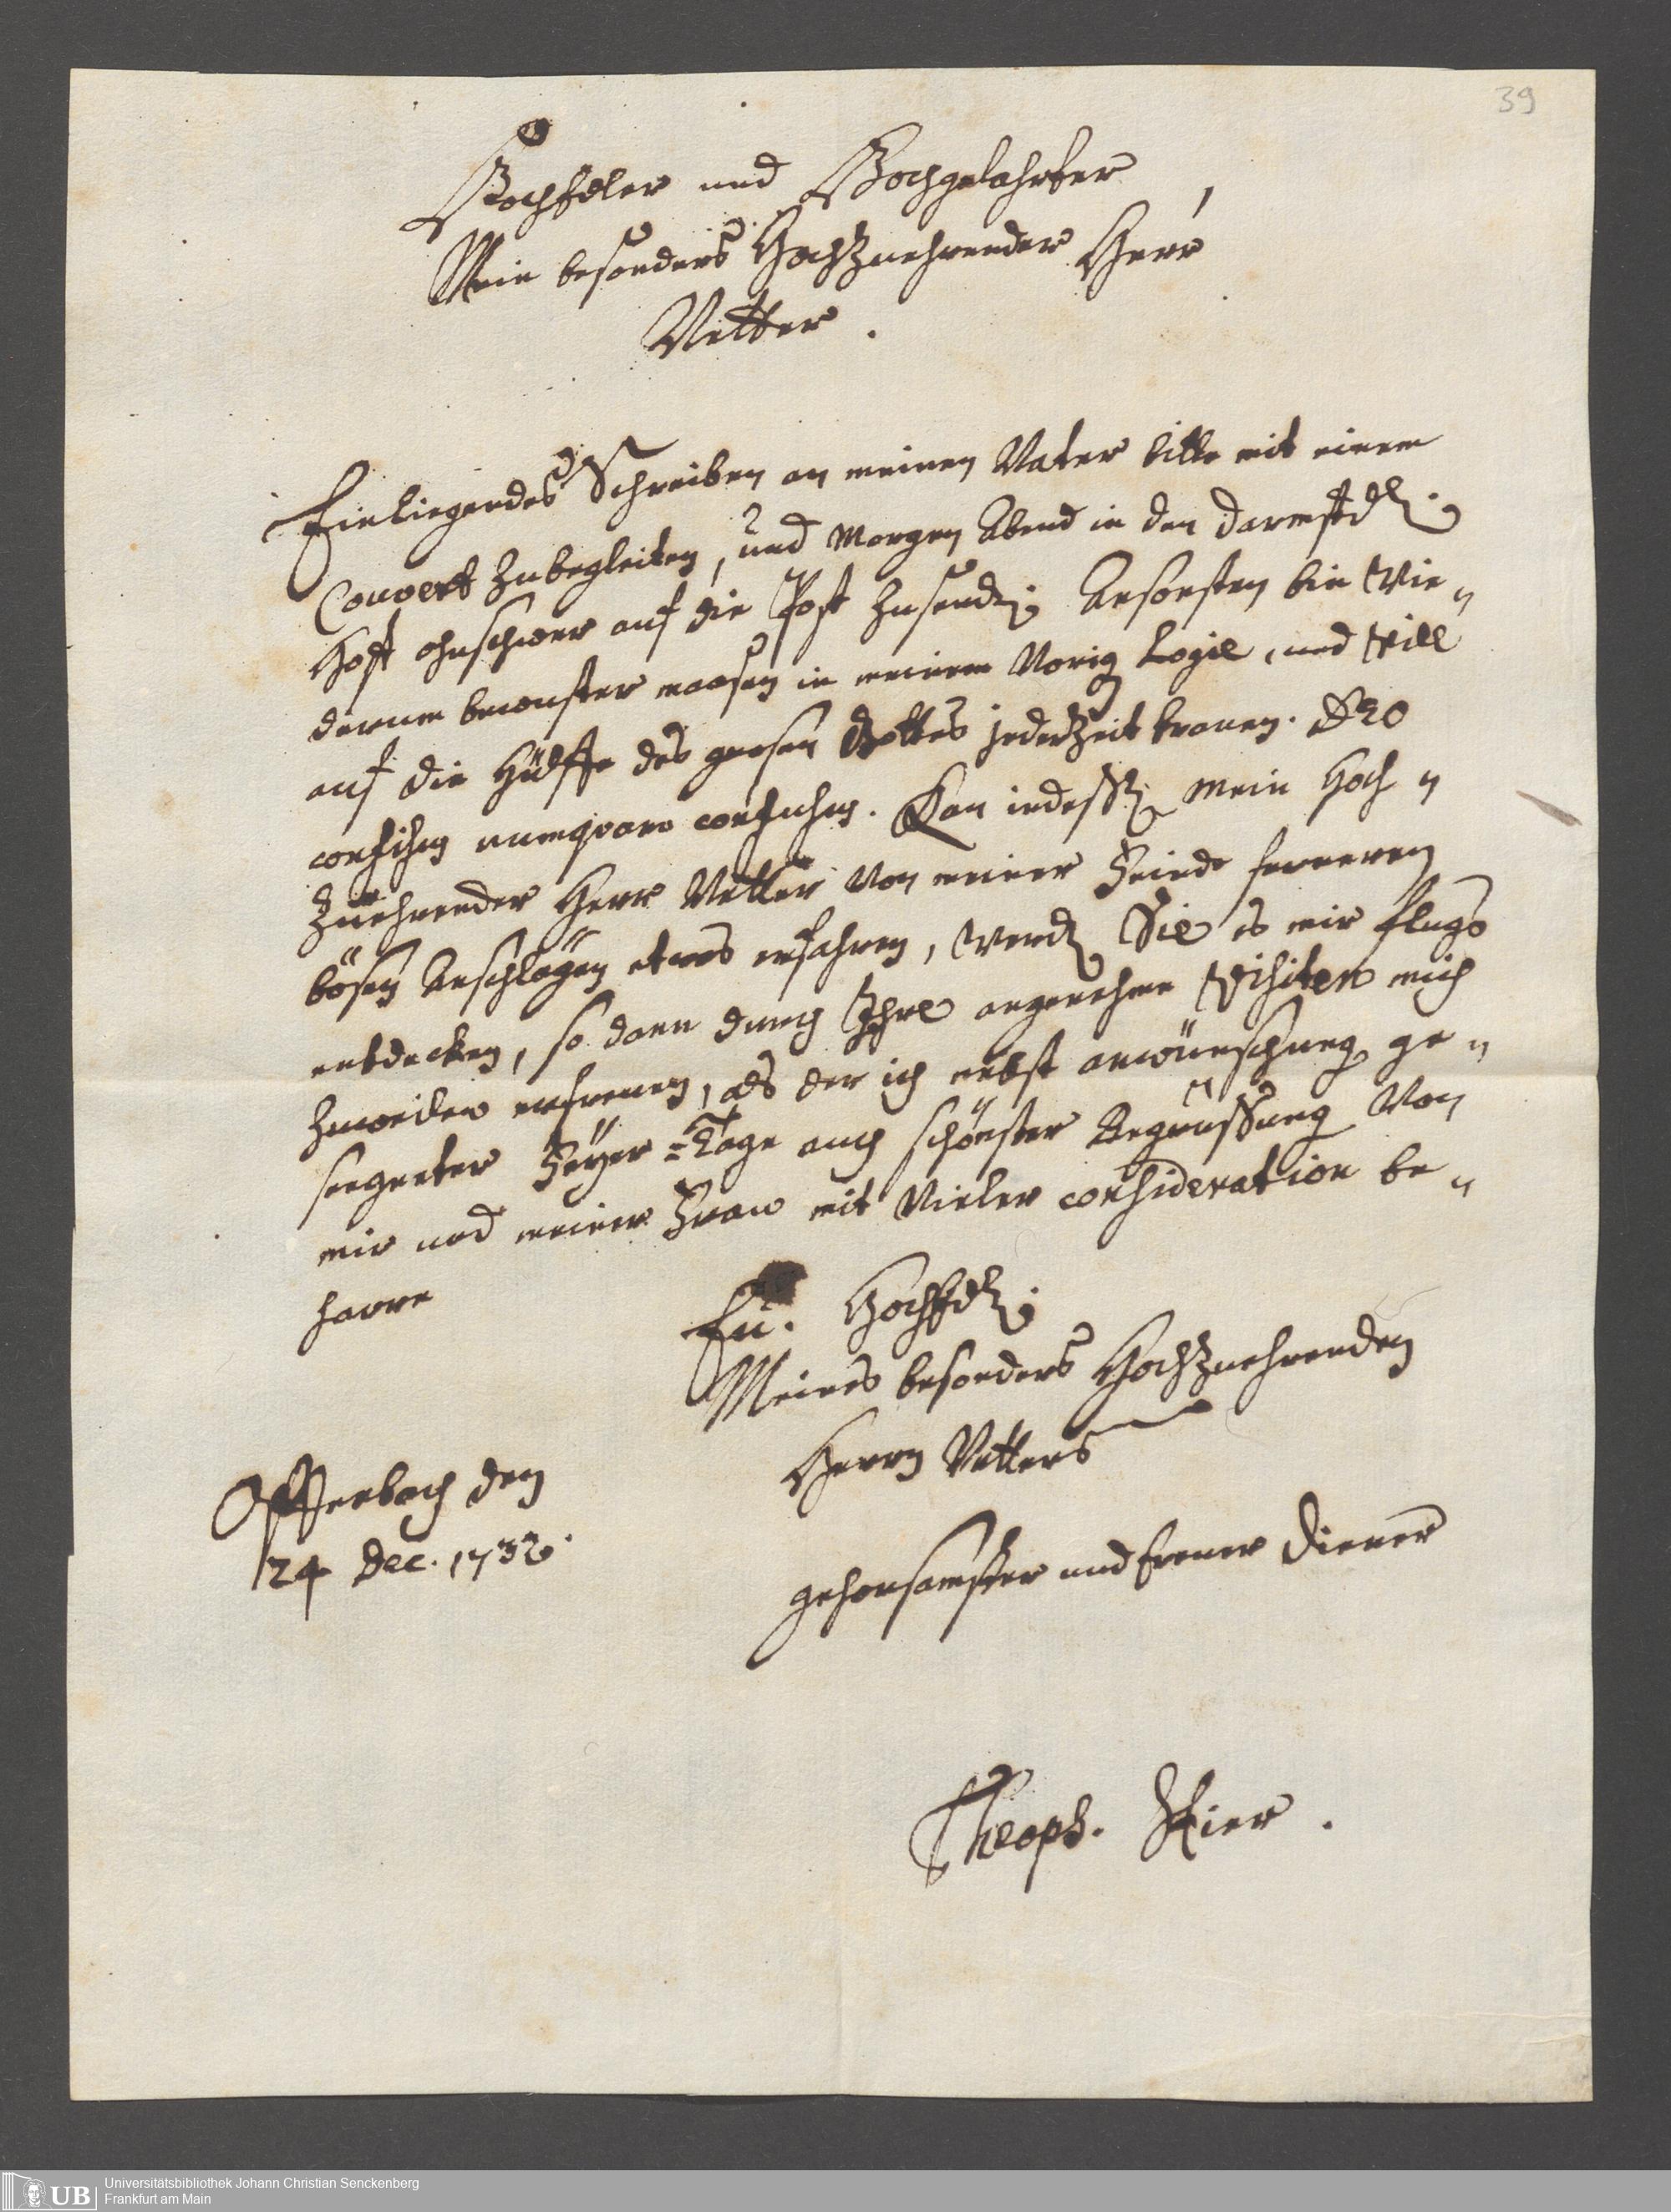 39
HochEdler und Hochgelahrter,
Mein besonders Hochzuehrender Herr
Vetter.
Einliegendes Schreiben an meinen Vater bitte mit einem
Couvert zubegleiten, und Morgen Abend in den Darmstdl.
Hoff ohnschwer auf die Post zusenden. Ansonsten bin Wie„
derum bewuster maasen in meinem Vorig Logie, und Will
auf die Hülffe des grosen Gottes jederzeit trauen. DEO
confisus numquam confusus. Kan indessen mein Hoch„
Zuehrender Herr Vetter Von meiner Feinde ferneren
bösen Anschlägen etwas erfahren, Werden Sie es mir flugs
entdecken, so dann durch Ihre angenehme Visiten mich
zuweilen erfreuen, als der ich nebst anwünschung ge„
seegneter Feyer=Tage auch schönster Begrüssung Von
mir und meiner Frau mit Vieler consideration be„
harre
Eu. HochEdl.
Meines besonders Hochzuehrenden
Herrn Vetters
Offenbach den
24 Dec. 1732.
gehorsamster und treuer Diener
Theoph. Stier.
UB Universitätsbibliothek Johann Christian Senckenberg
Frankfurt am Main